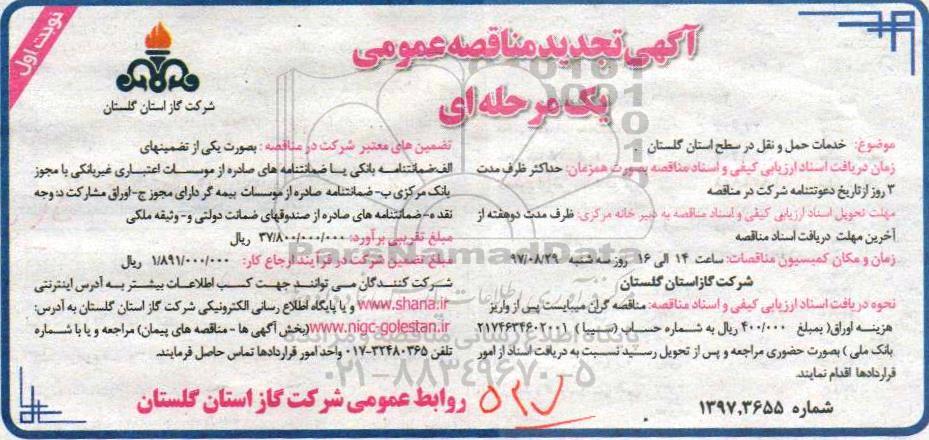 نوبت اول
آگهی تجدید مناقصه عمومی
یک مرحله ای
شرکت گاز استان گلستان
موضوع: خدمات حمل و نقل در سطح استان گلستان .
زمان دریافت اسناد ارزیابی کیفی و اسناد مناقصه بصورت همزمان: حداکثر ظرف مدت
۳ روز از تاریخ دعوتنامه شرکت در مناقصه
مهلت تحویل اسناد ارزیابی کیفی و اسناد مناقصه به دبیر خانه مرکزی: ظرف مدت دوهفته از
آخرین مهلت دریافت اسناد مناقصه
زمان و مکان کمیسیون مناقصات: ساعت ۱۴ الی ۱۶ روز سه شنبه ۹۷/۰۸/۲۹
شرکت گاز استان گلستان
نحوه دریافت اسناد ارزیابی کیفی و اسناد مناقصه: مناقصه گران میبایست پس از واریز
هزینه اوراق( بمبلغ ۴۰۰/۰۰۰ ریال به شماره حساب (سیبا ) ۲۱۷۴۶۳۴۶۰۲۰۰۱
بانک ملی ) بصورت حضوری مراجعه و پس از تحویل رسید نسبت به دریافت اسناد از امور
قراردادها اقدام نمایند.
شماره ۱۳۹۷,۳۶۵۵
تضمین های معتبر شرکت در مناقصه : بصورت یکی از تضمینهای
الف-ضمانتنامه بانکی یا ضمانتنامه های صادره از موسسات اعتباری غیربانکی با مجوز
بانک مرکزی ب- ضمانتنامه صادره از موسسات بیمه گر دارای مجوز ج-اوراق مشارکت د: وجه
نقد ه- ضمانتنامه های صادره از صندوقهای ضمانت دولتی و- وثیقه ملکی
مبلغ تقریبی برآورد: ۳۷/۸۰۰/۰۰۰/۰۰۰ ریال
مبلغ تضمین شرکت در فرآیند ارجاع کار: ۱/۸۹۱/۰۰۰/۰۰۰ ریال
شرکت کنندگان می توانند جهت کسب اطلاعات بیشتر به آدرس اینترنتی
www.shana.ir و یا پایگاه اطلاع رسانی الکترونیکی شرکت گاز استان گلستان به آدرس:
www.nigc-golestan.ir (بخش آگهی ها - مناقصه های پیمان) مراجعه و یا با شماره
تلفن ۳۲۴۸۰۳۶۵-۰۱۷ واحد امور قراردادها تماس حاصل فرمایند.
روابط عمومی شرکت گاز استان گلستان
ParsNamadData
۰۲۱-۸۸۳۴۹۶۷۰-۵